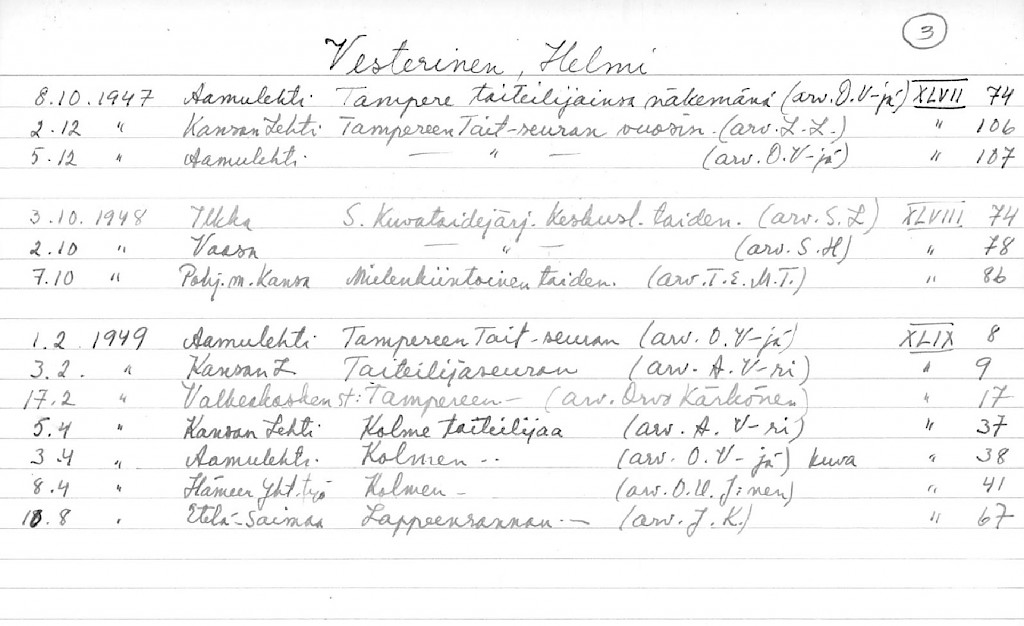 3
Vesterinen, Helmi
8.10.1947 Aamulehti Tampere taiteilijainsa näkemänä (arv. O.V-jä) XLVII 74
2.12 " Kansan Lehti Tampereen Tait-seuran vuosin. (arv. L.L.) " 106
5.12 " Aamulehti — " — (arv. O.V-jä) " 107
3.10.1948 Ilkka S. Kuvataidejärj. Keskusl. taiden. (arv. S.L) XLVIII 74
2.10 " Vaasa — " — (arv. S.H) " 78
7.10 " Pohj.m. Kansa Mielenkiintoinen taiden. (arv. T.E.M.T.) " 86
1.2.1949 Aamulehti Tampereen Tait-seuran (arv. O.V-jä) XLIX 8
3.2. " Kansan L Taiteilijaseuran (arv. A. V-ri) " 9
17.2 " Valkeakosken st: Tampereen- (arv. Orvo Kärkönen) " 17
5.4 " Kansan Lehti Kolme taiteilijaa (arv. A. V-ri) " 37
3.4 " Aamulehti. Kolmen -- (arv. O.V-jä) kuva " 38
8.4 " Hämeen Yht.työ Kolmen - (arv. O.W. J:nen) " 41
10.8 " Etelä-Saimaa Lappeenrannan -- (arv. J.K.) " 67